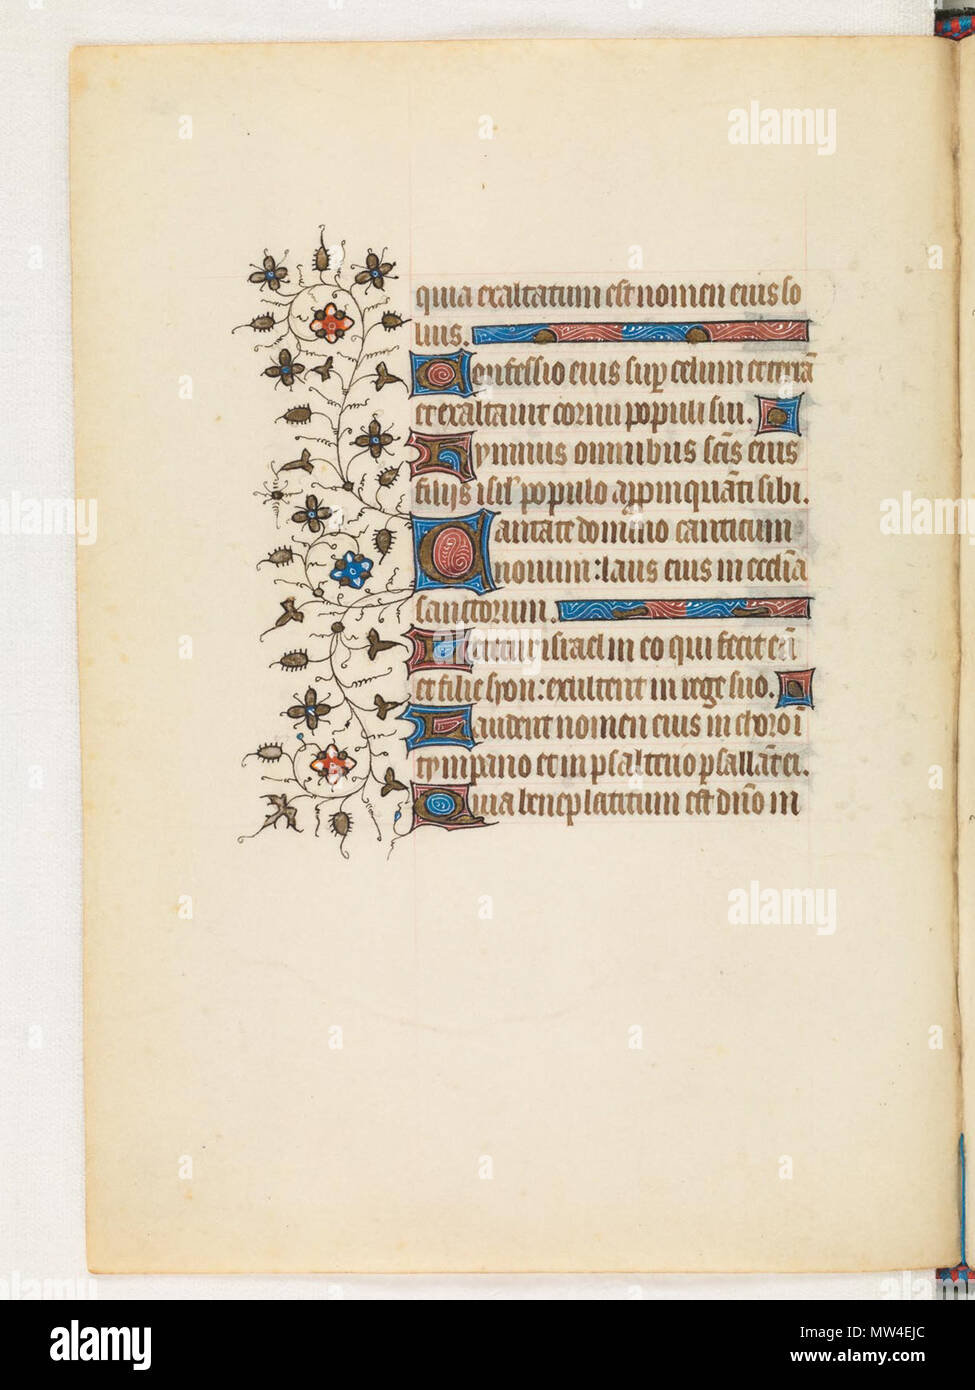 quia exaltatum est nomen eius so
lius.
Confessio eius sup̱ celum et terrā
et exaltauit cornu populi sui.
Hymnus omnibus sc̄is eius
filiis isrl̄ populo app̱inquāti sibi.
Cantate domino canticum
nouum: laus eius in ecclīa
sanctorum.
Letetur israel in eo qui fecit eū
et filie syon: exultent in rege suo.
Laudent nomen eius in choro ī
tympano et in psalterio psallāt ei.
Quia beneplacitum est dn̄o in
alamy
alamy
alamy
Image ID: MW4EJC
www.alamy.com